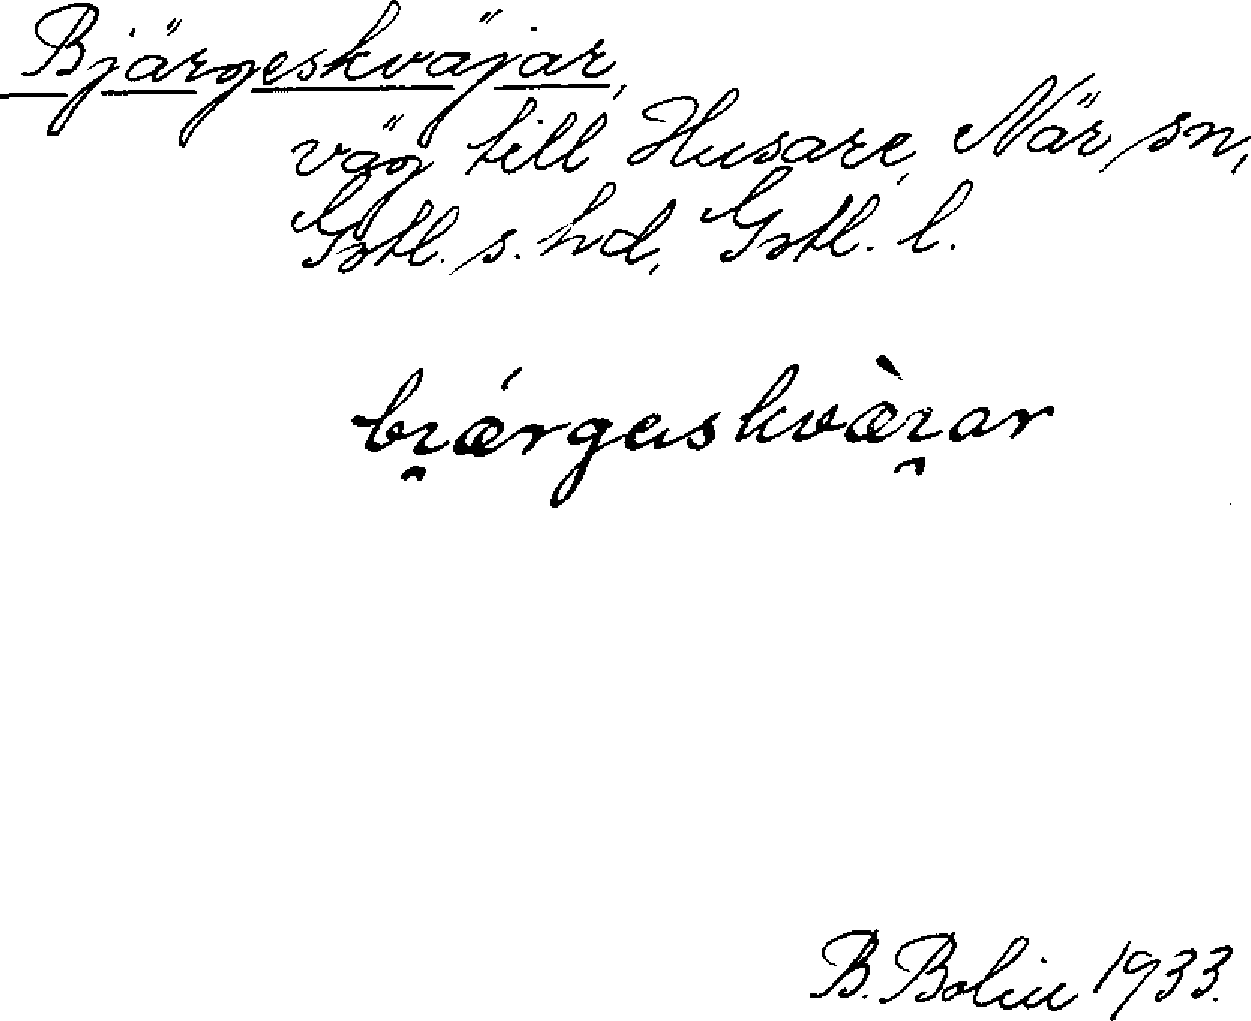 Bjärgeskväjar,
väg till Husare, När sn,
Gtl. s. hd, Gtl. l.
bɪ̯ǽrgaskvæ̀ɪ̯ar
B. Bolin 1933.